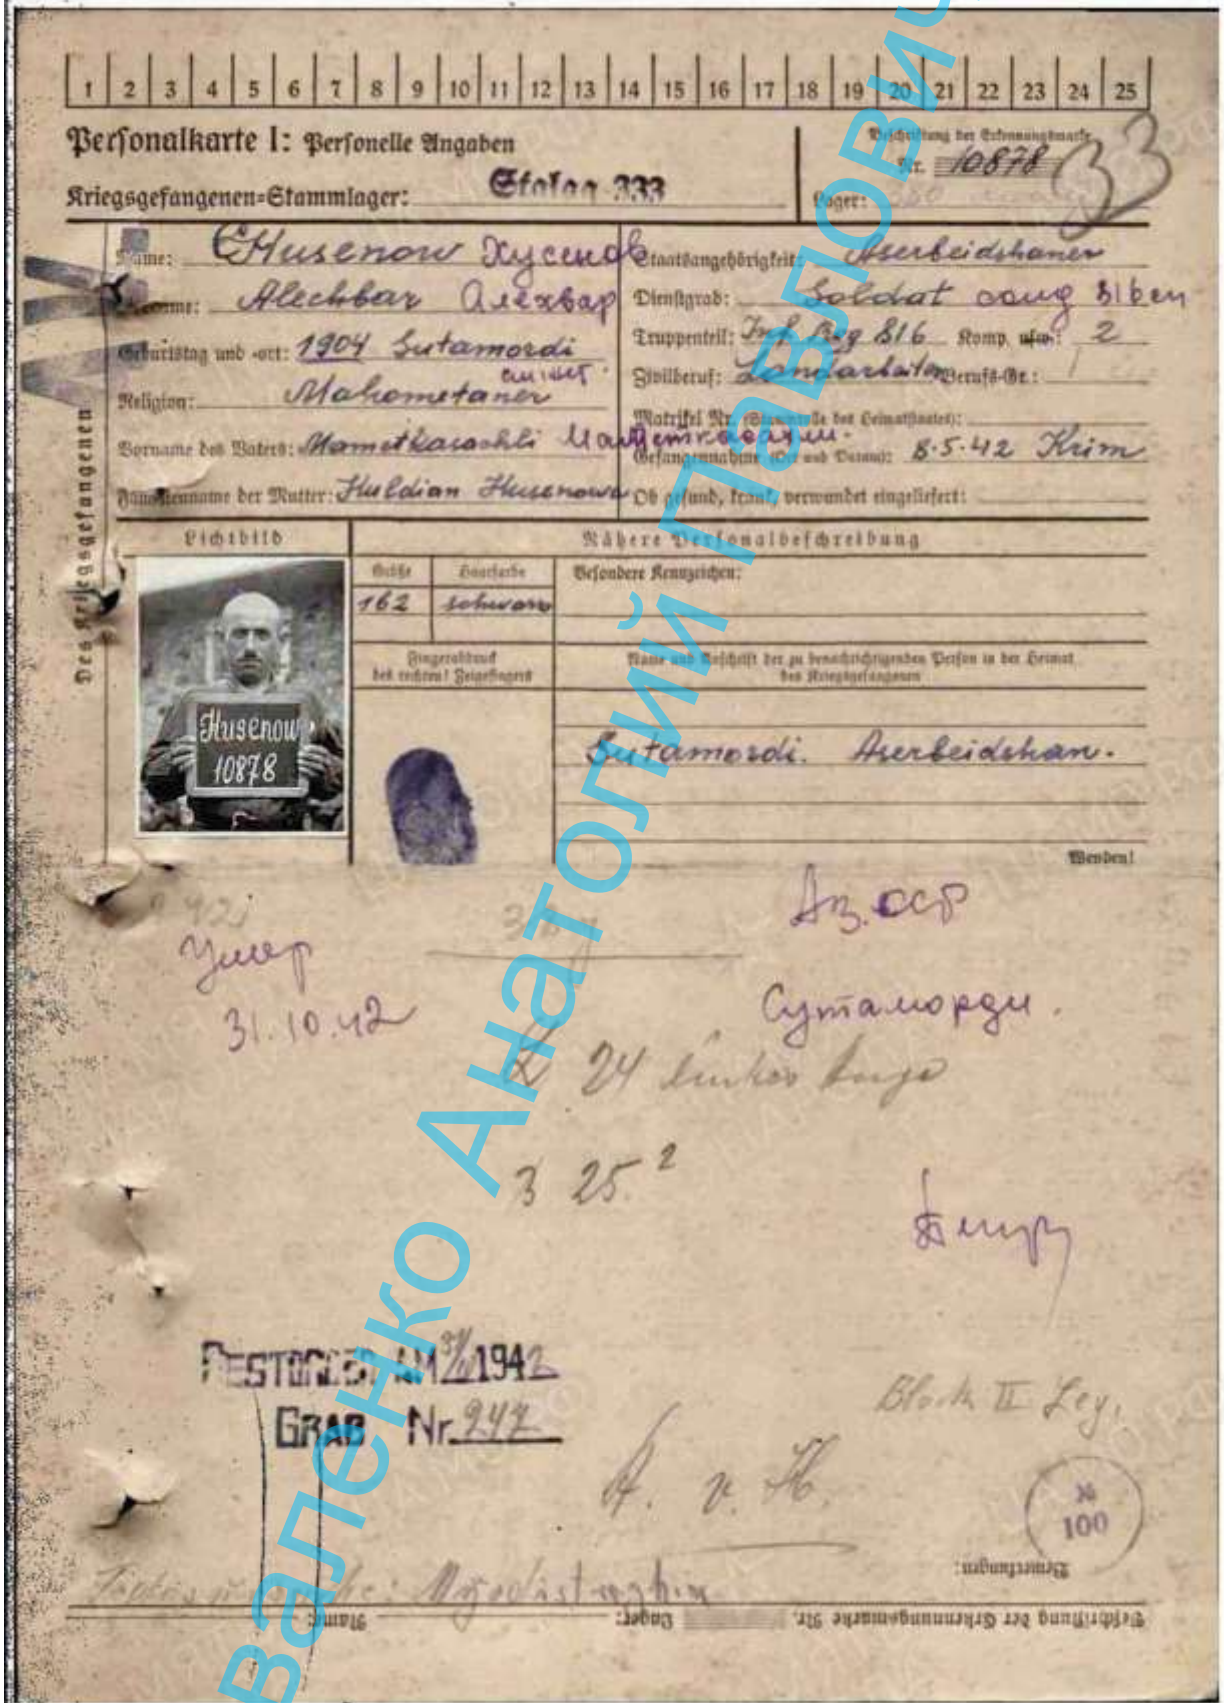 1 2 3 4 5 6 7 8 9 10 11 12 13 14 15 16 17 18 19 20 21 22 23 24 25
Personalkarte I: Personelle Angaben
Kriegsgefangenen=Stammlager: Stalag 333
Beschriftung der Erkennungsmarke
Nr. 10878
Lager:
33
Des Kriegsgefangenen
Name: Husenow Хусенов
Vorname: Alechbar Алехвар
Geburtstag und -ort: 1904 Sutamordi
Religion: Mahometaner
Vorname des Vaters: Mametkasachli
Familienname der Mutter: Huldian Husenowa
Staatsangehörigkeit: Aserbeidshaner
Dienstgrad: Soldat
Truppenteil: Inf. Reg 816 Komp. usw.: 2
Zivilberuf: Landarbeiter Berufs-Gr.:
Matrikel Nr. (Stammrolle des Heimatstaates):
Gefangennahme (Ort und Datum): 8.5.42 Krim
Ob gesund, krank, verwundet eingeliefert:
Lichtbild
Nähere Personalbeschreibung
Größe Haarfarbe Besondere Kennzeichen:
162 schwarz
Fingerabdruck
des rechten! Zeigefingers
Name und Anschrift der zu benachrichtigenden Person in der Heimat
des Kriegsgefangenen
Husenow
10878
Sutamordi. Aserbeidshan.
Wenden!
Аз. сср
Умер
31.10.42
Сутаморди.
24
3 25.2
GESTORBEN AM 31/10 1942
GRAB Nr. 247
Block II
A. v. H.
100
Bemerkungen:
Beschriftung der Erkennungsmarke Nr. Lager: Name:
валенко Анатолий Павлович